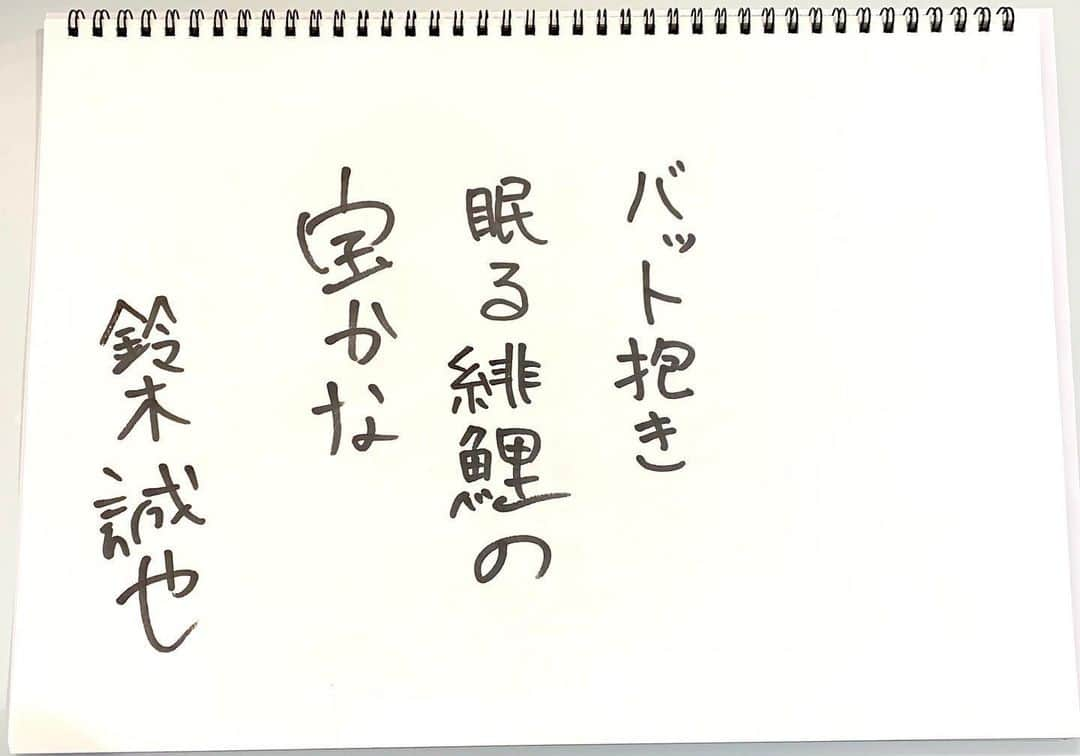 バット抱き
眠る緋鯉の
宝かな
鈴木誠也